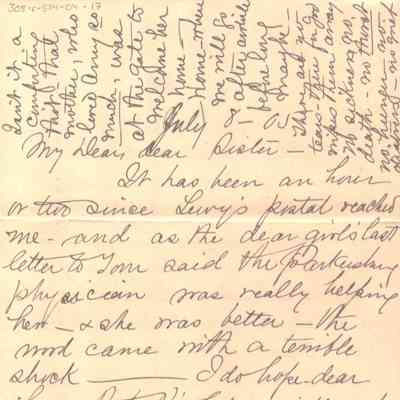 308-c-574-04-17
Isn't it a
comforting
that that
mother, who
loved Amy so
much, was
at the gate to
welcome her
home—
Home—where
we will go
after awhile
before long
maybe!—
There are no
tears—there for God
wipes them away
no sickness, no
death—no thirst
no hunger—no
July 8—05
My Dear, dear Sister—
It has been an hour
or two since Lewy's postal reached
me—and as the dear girl's last
letter to Tom said the Parkersburg
physician was really helping
her—& she was better—the
word came with a terrible
shock—I do hope dear